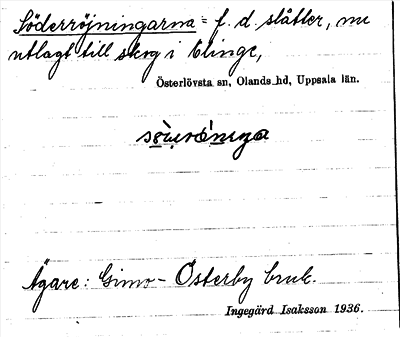 Söderröjningarna = f. d. slåtter, nu
utlagt till skog i Elinge,
Österlövsta sn, Olands hd, Uppsala län.
Ägare: Gimo - Österby bruk.
Ingegärd Isaksson 1936.